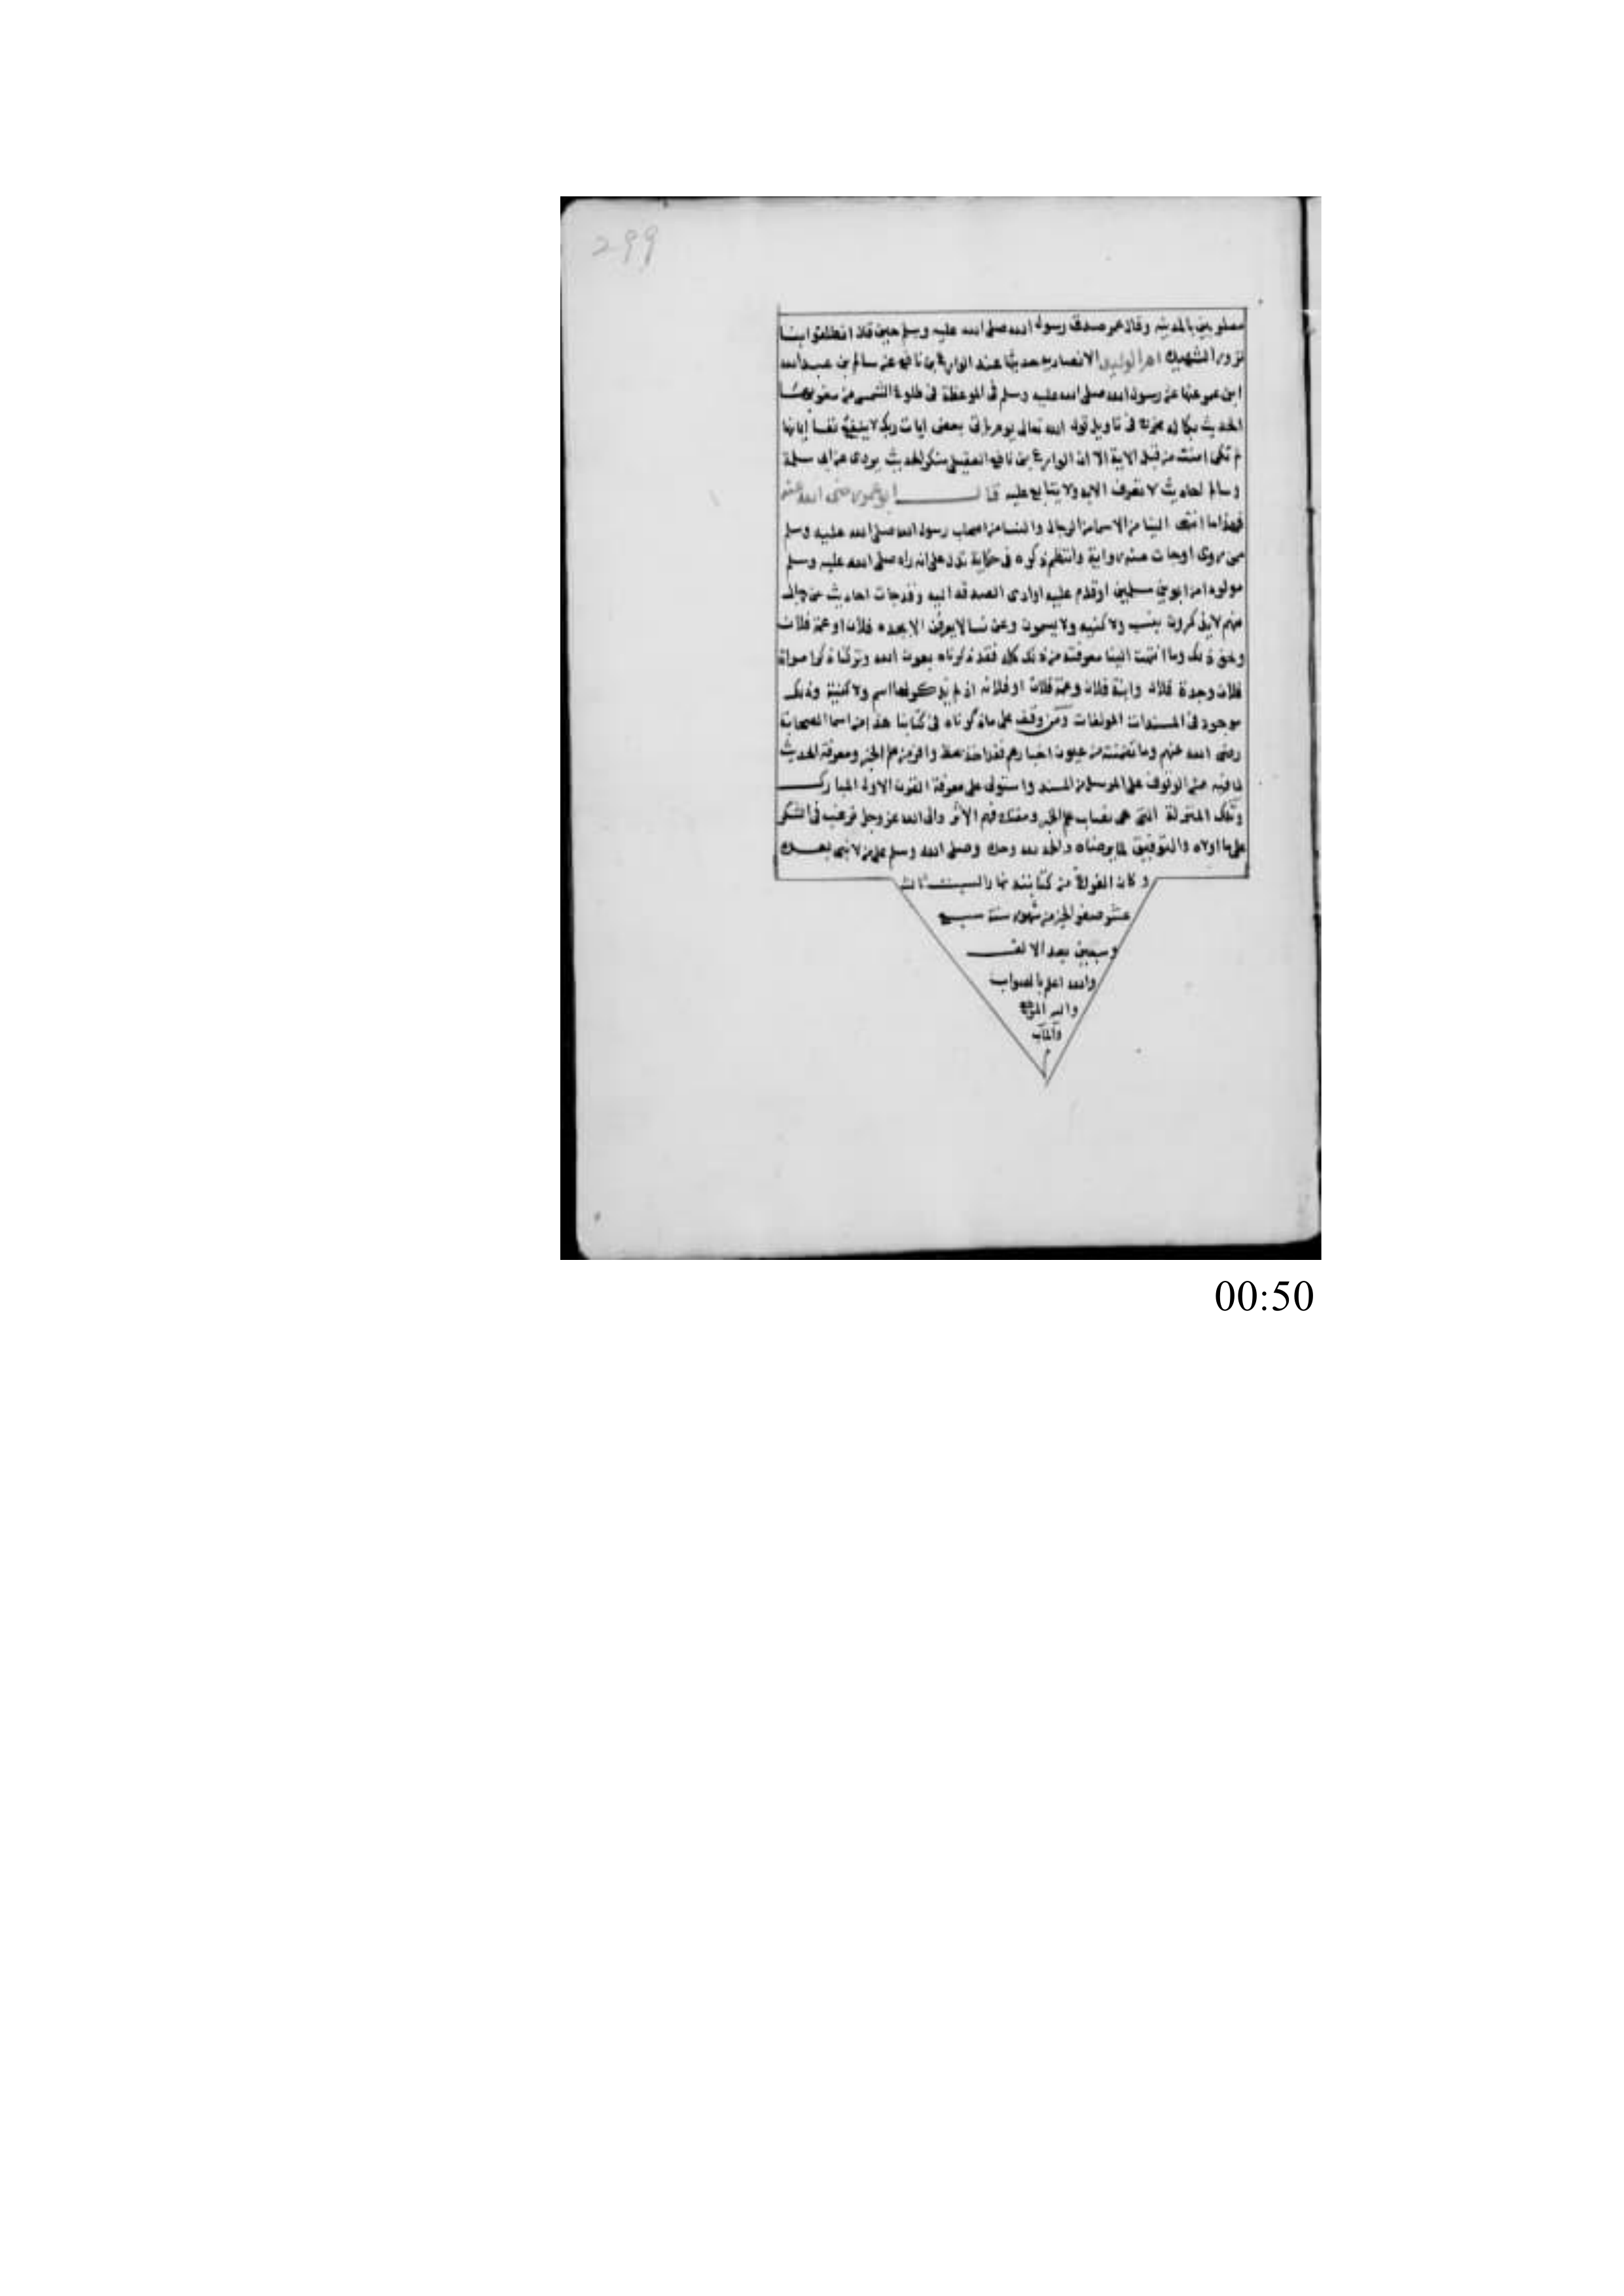 299
مصلوبين بالمدينة وقال عمر صدق رسول الله صلى الله عليه وسلم حين قال انطلقوا بنا
نزور الشهيدة ام الوليد الانصارية حديثها عند الوازع بن نافع عن سالم بن عبد الله
ابن عمر عنها عن رسول الله صلى الله عليه وسلم في الموعظة في طلوع الشمس من مغربها
الحديث بكماله في تاويل قوله الله تعالى يوم ياتي بعض ايات ربك لا ينفع نفسا ايمانها
لم تكن امنت من قبل الاية الا ان الوازع بن نافع العقيلي منكر الحديث يروي عن ابي سلمة
وسالم احاديث لا تعرف الا به ولا يتابع عليه قال ابو عمر رضى الله عنه
فهذا ما انتهى الينا من الاسما من الرجال والنسا من اصحاب رسول الله صلى الله عليه وسلم
من روى او جات عنه رواية وانتظم ذكره في حكاية تدل على انه راه صلى الله عليه وسلم
مولودا من ابوين مسلمين او قدم عليه او ادى الصدقة اليه وقد جات احاديث عن رجال
منهم لا يذكرون بنسب ولا كنيه ولا يسمون وعن نسا لا يعرفن الا بجده فلان او عمة فلان
ونحو ذلك وما انتهت الينا معرفته من ذلك كله فقد ذكرناه بعون الله وتركنا ذكر امراة
فلان وجدة فلان وابنة فلان وعمة فلان او فلانه اذ لم يذكر لها اسم ولا كنية وذلك
موجود في المسندات المولفات ومن وقف على ما ذكرناه في كتابنا هذا من اسما الصحابة
رضى الله عنهم وما تضمنته من عيون اخبارهم فقد اخذ بحظ وافر من علم الخبر ومعرفة الحديث
لما فيه من الوقوف على المرسل من المسند واستولى على معرفة القرن الاول المبارك
وتلك المنزلة التي هي نصاب علم الخبر ومفتاح فهم الاثر والى الله عز وجل نرغب في الشكر
على ما اولاه والتوفيق لما يرضاه والحمد لله وحده وصلى الله وسلم على من لا نبي بعده
وكان الفراغ من كتابته نهار السبت ثالث
عشر صفر الخير من شهور سنة سبع
وسبعين بعد الالف
والله اعلم بالصواب
واليه المرجع
والمآب
م
00:50